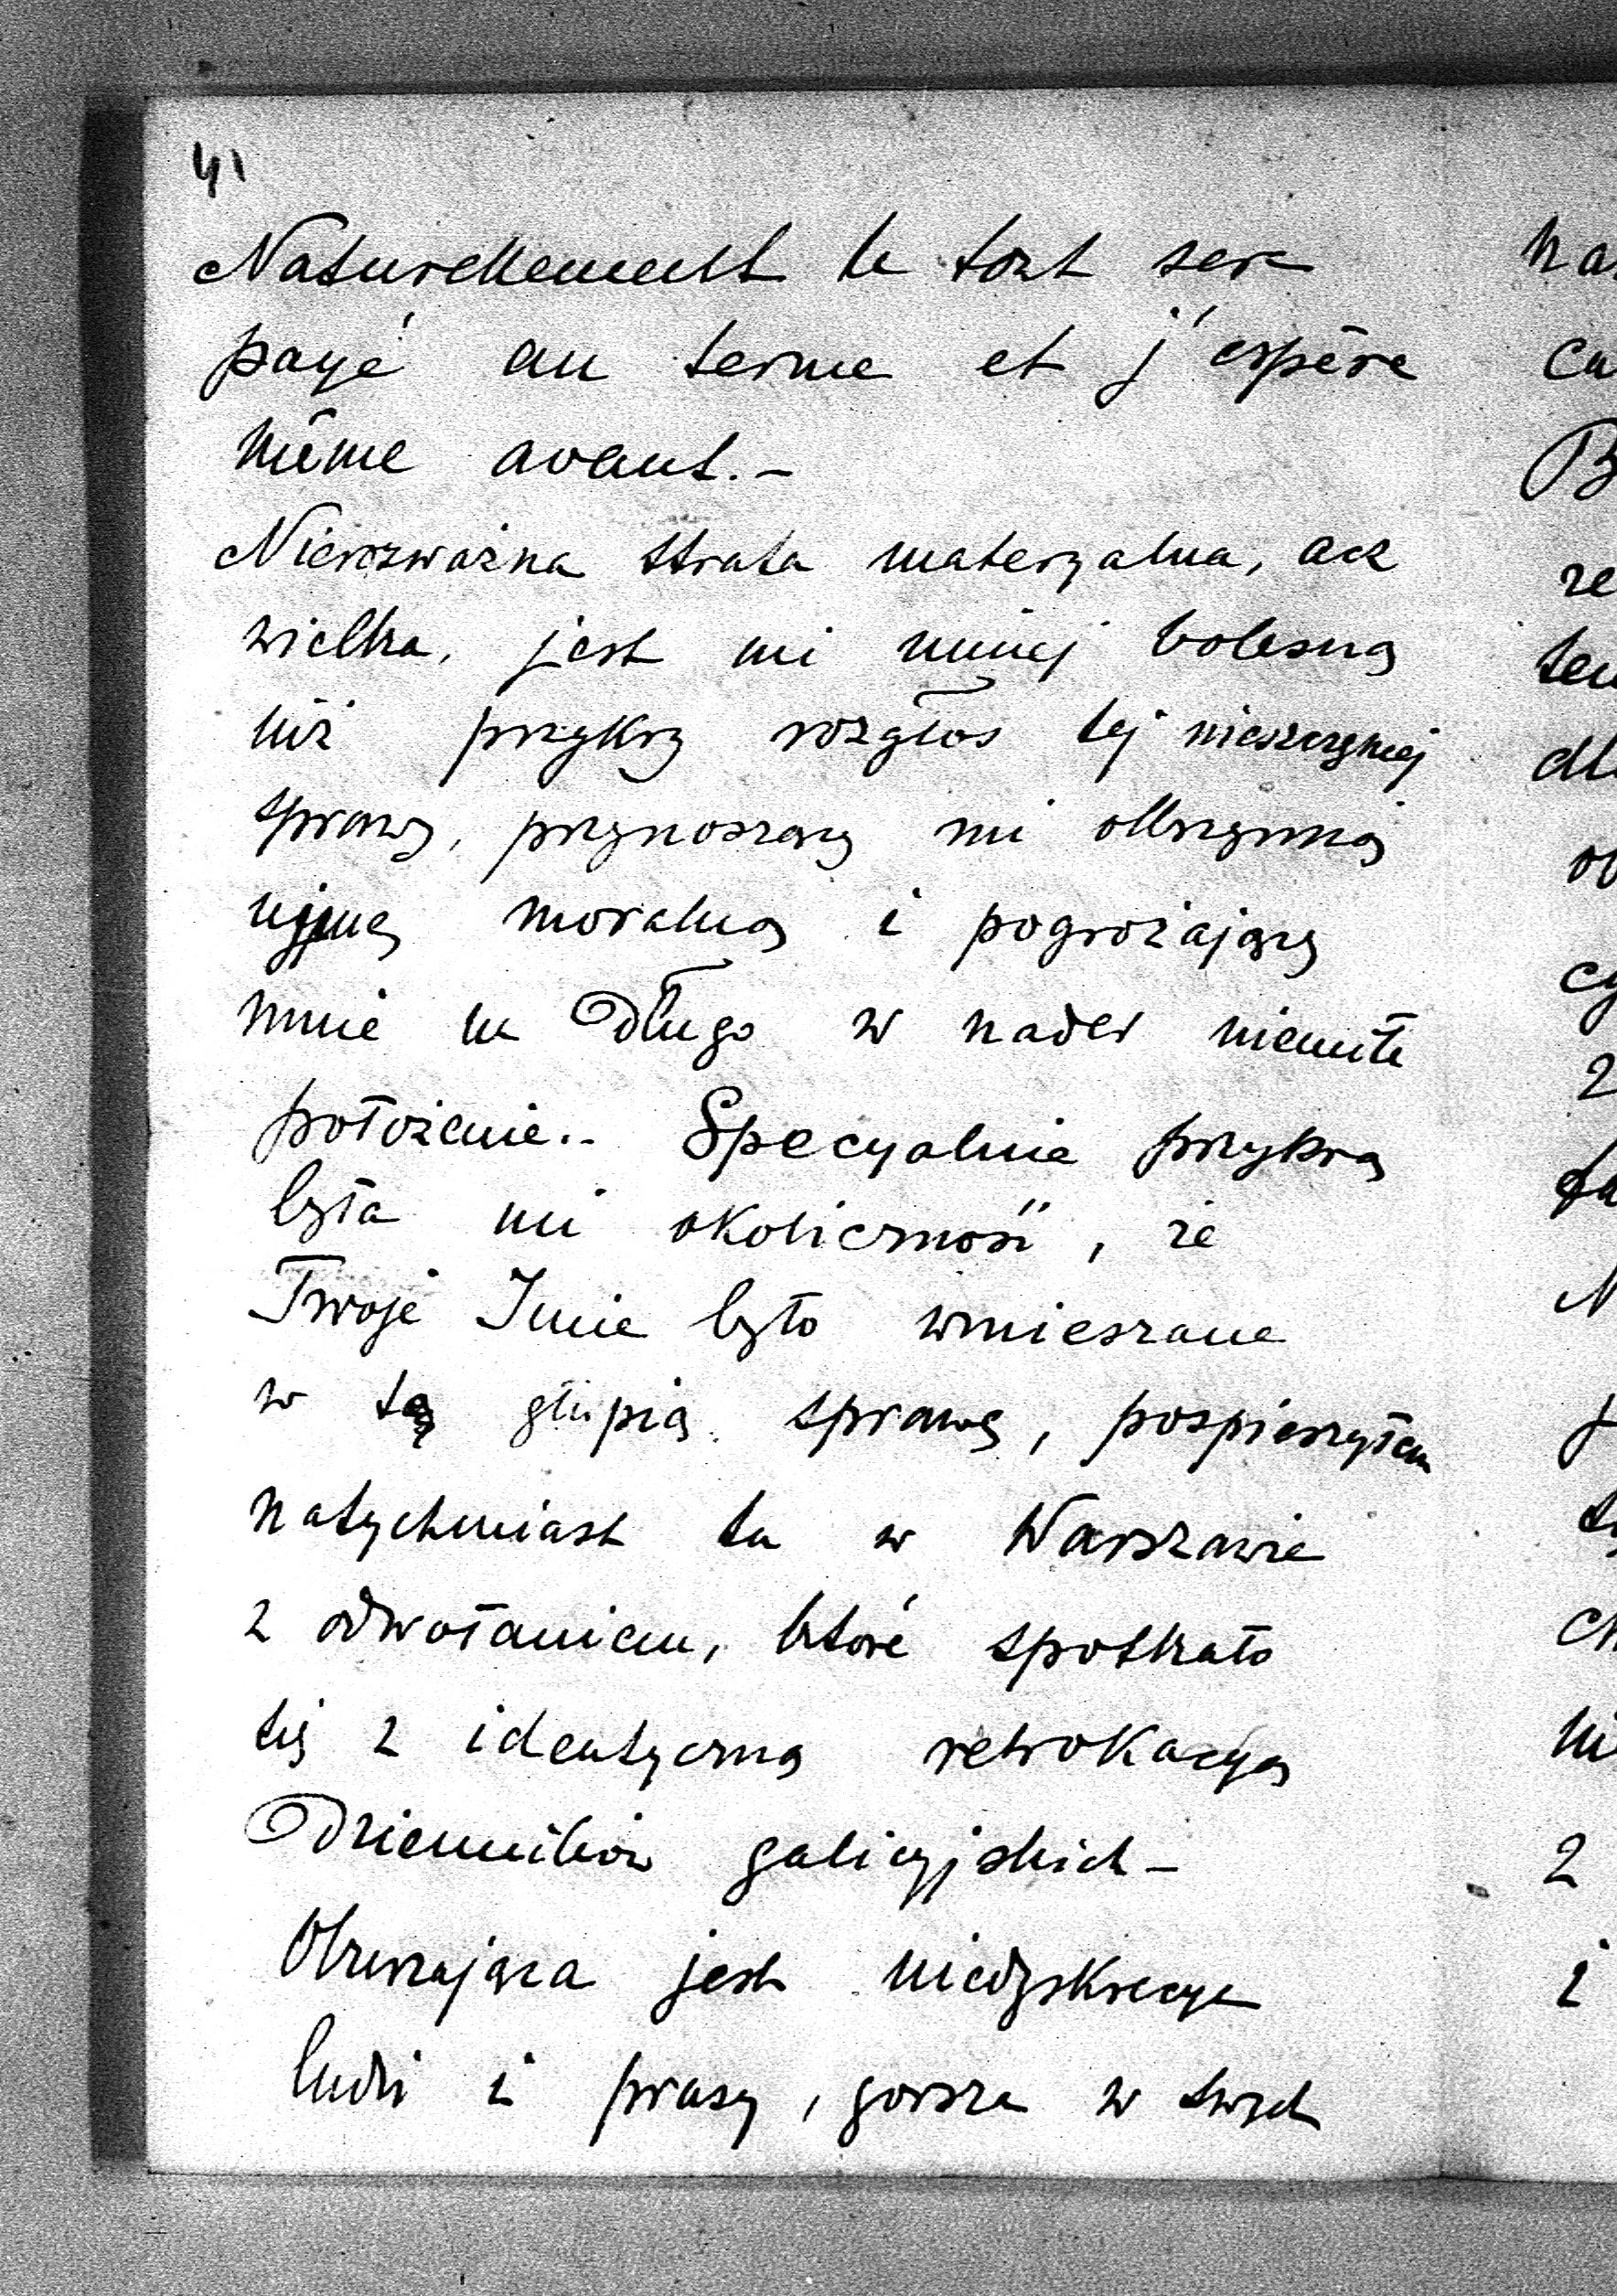 41
Naturellement le tout sera
payé au terme et j'espère
même avant.-
Nierozważna strata materyalna, acz
wielka, jest mi mniej bolesną
niż przykry rozgłos tej nieszczęsnej
sprawy, przynoszący mi olbrzymią
ujmę moralną i pogrożający
mnie na długo w nader niemiłe
położenie.- Specyalnie przykrą
była mi okoliczność, że
Twoje Imie było wmieszane
w tę głupią sprawę, pospieszyłem
natychmiast tu w Warszawie
z odwołaniem, które spotkało
się z identyczną rewokacyą
Dzienników galicyjskich -
Oburzająca jest niedyskrecya
ludzi i prasy, gorsza w swych